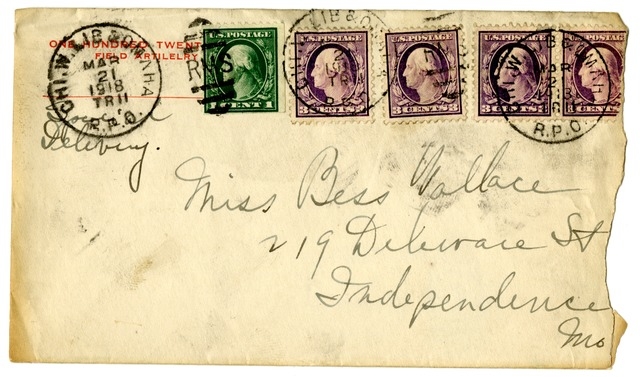 ONE HUNDRED TWENT
FIELD ARTILLERY
CHI. W. LIB & OMAHA
MAR
21
1918
TR 11
R.P.O.
U.S. POSTAGE
CENT 1
U.S. POSTAGE
3 CENTS 3
U.S. POSTAGE
3 CENTS 3
U.S. POSTAGE
3 CENTS 3
U.S. POSTAGE
R.P.O.
Special
Delivery.
Miss Bess Wallace
219 Deleware St
Independence
Mo